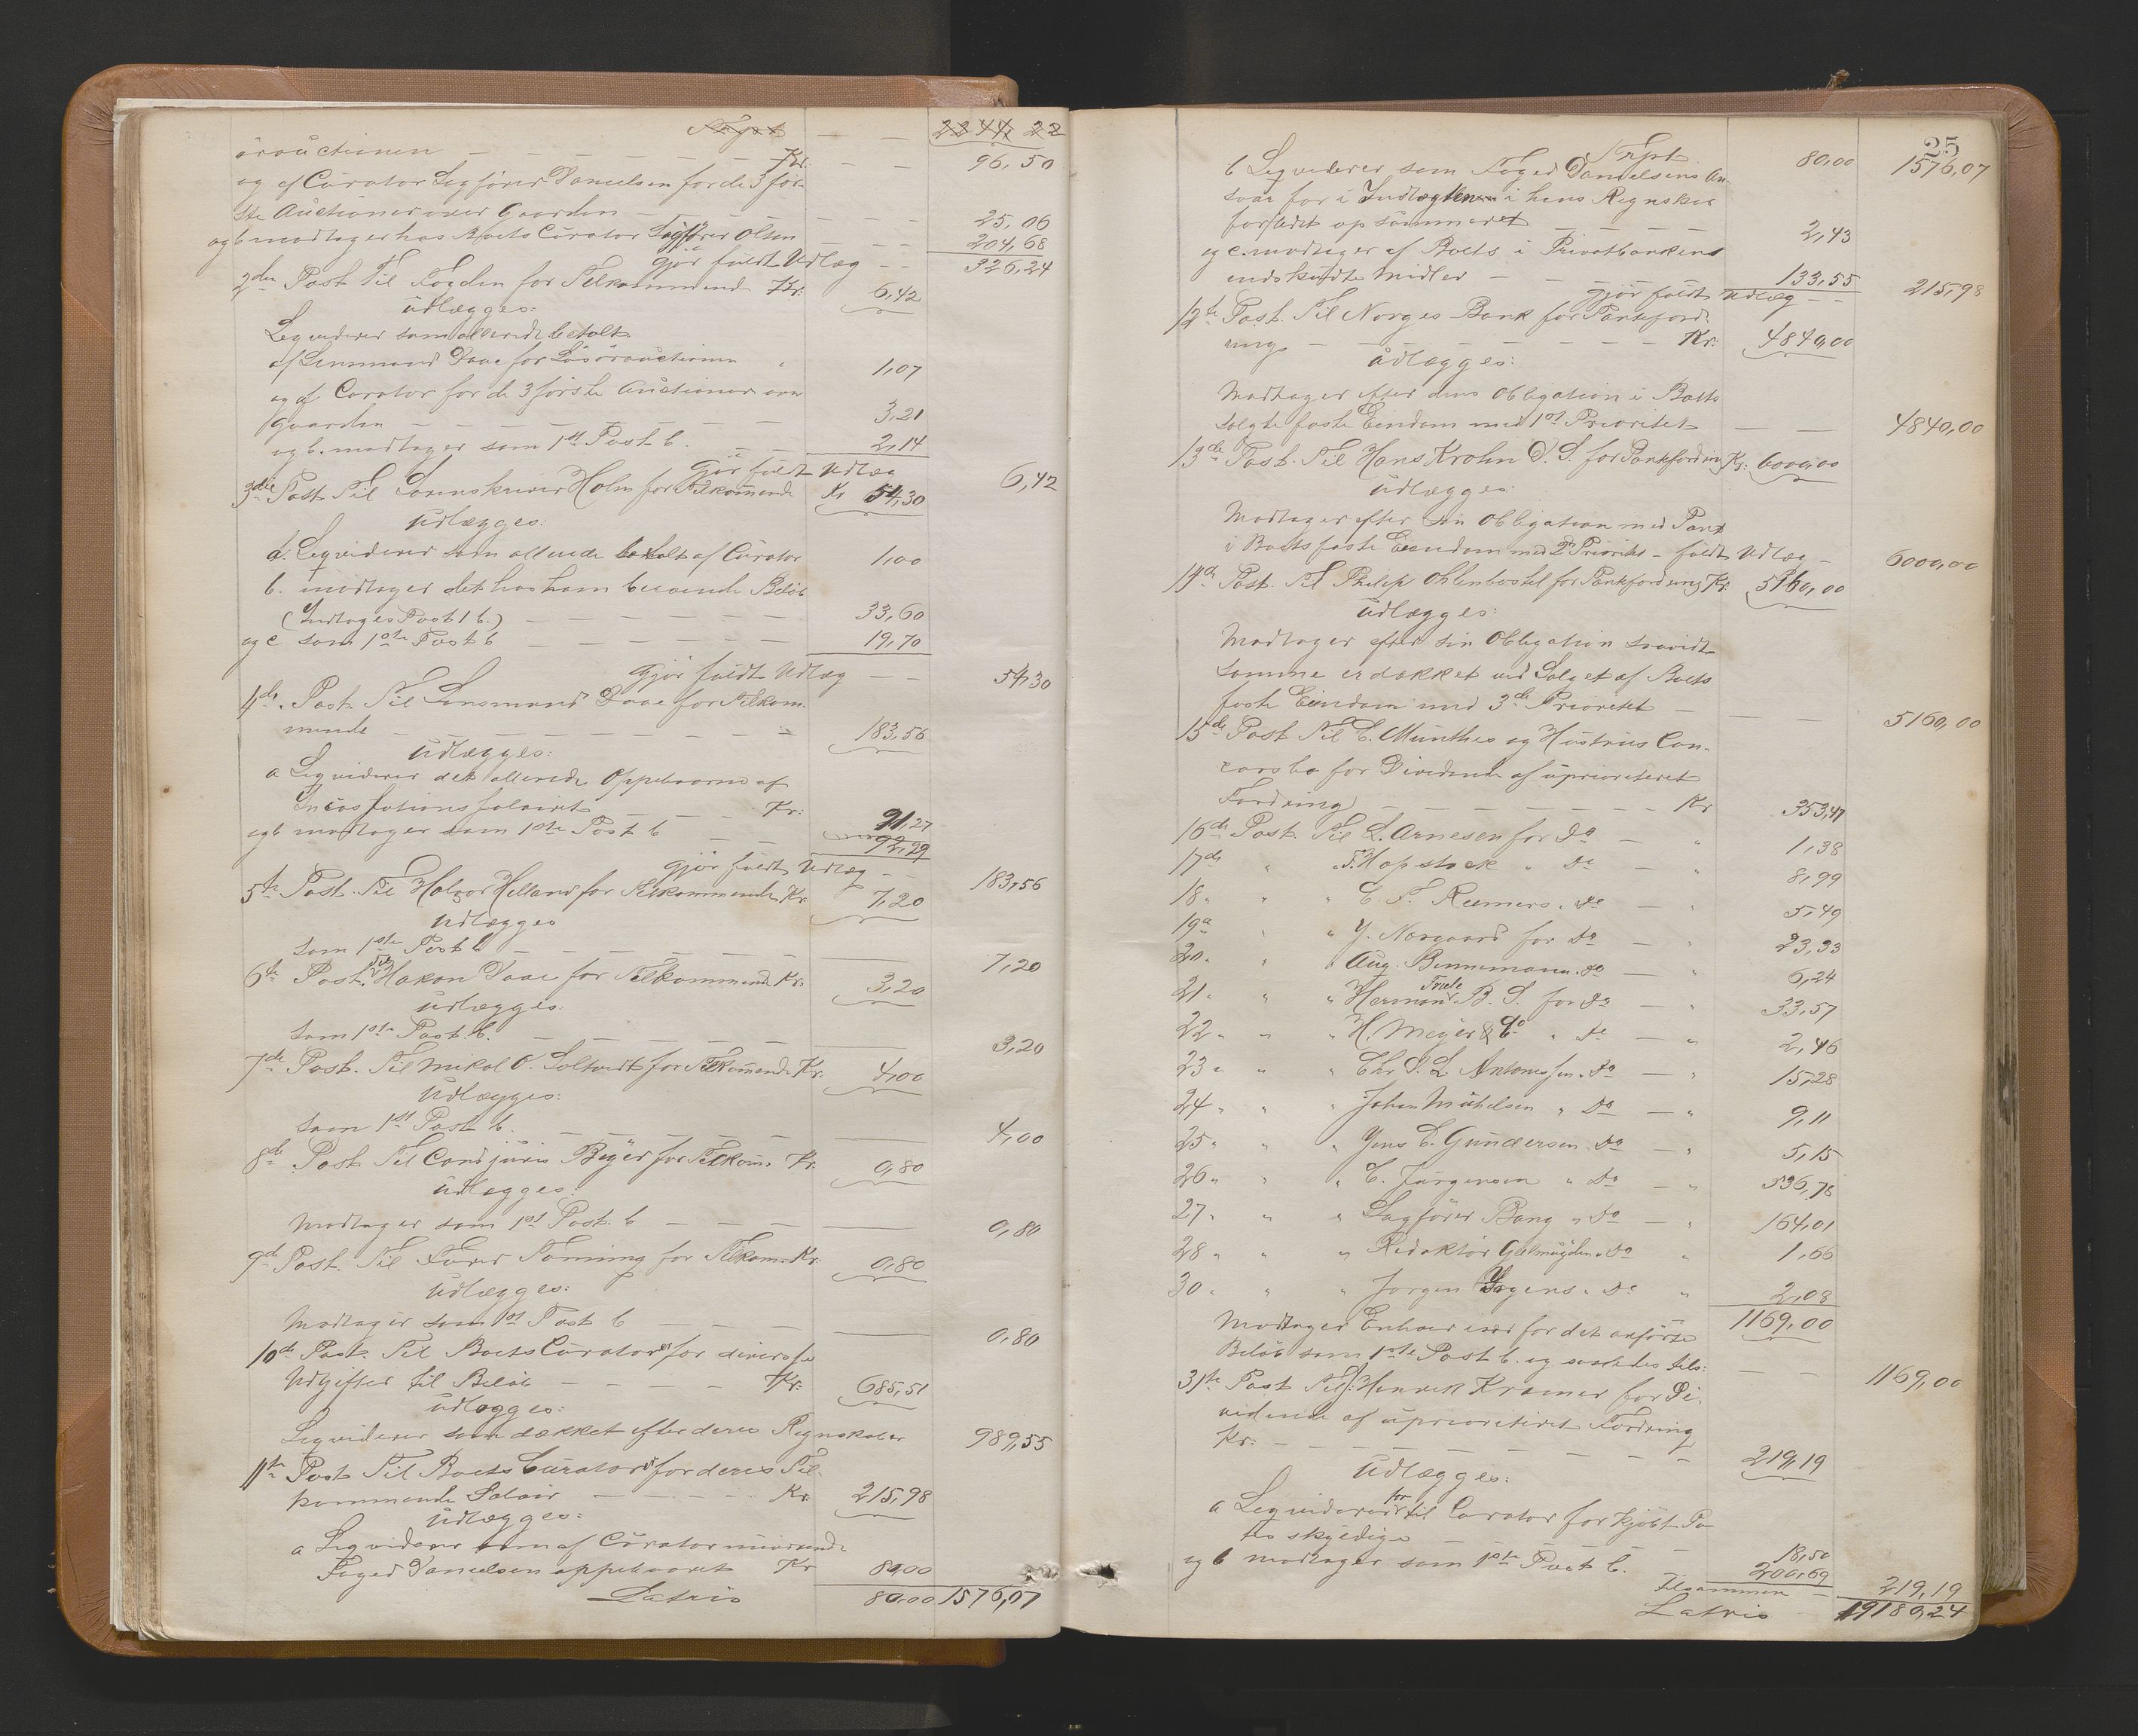 Trspt — — 2244, 22
örauctionen — — — — — — Kr: — — 96,50
og af Curator Sagfører Danielsen for de 3 før-
ste Auctioner over Gaarden — — — — — — 25,06
og b modtager hos Boets Curator Sagfører Olsen — — 204,68
gjør fuldt Udlæg — — 326,24
2den Post Til Fogden for Tilkommende Kr: 6,42
Udlægges:
Liqviderer som allerede betalt
af Lensmand Daae for Løsøreauctionen " 1,07
og af Curator for de 3 første Auctioner over
Gaarden — — — — — — — — 3,21
og b. modtager som 1ste Post b. — — 2,14
gjør fuldt Udlæg 6,42
3die Post Til Sorenskriver Holm for Tilkommende Kr 54,30
Udlægges:
a. Liqviderer som allerede betalt af Curator 1,00
b. modtager det hos ham beroende Beløb
(Indtægts Post 1 b.) — — — — — — 33,60
og c som 1ste Post b — — — — — — 19,70
gjør fuldt Udlæg — — 54,30
4de. Post Til Lensmand Daae for Tilkom-
mende — — — — — — — — 183,56
Udlægges:
a Liqviderer det allerede Oppebaarne af
Incassationssalairet — — — Kr: 91,27
og b modtager som 1ste Post b — — 92,29
gjør fuldt Udlæg — — 183,56
5te Post. Til Holger Helland for Tilkommende Kr. 7,20
Udlægges
som 1ste Post b — — — — — — 7,20
6te Post. Til Hakon Daae for Tilkommend Kr. 3,20
Udlægges:
som 1ste Post b. — — — — — 3,20
7de Post. Til Mikal O. Soltvedt for Tilkommende Kr. 4,00
Udlægges:
som 1ste Post b. — — — — — 4,00
8de Post Til Cand juris Beyer for Tilkom Kr. 0,80
Udlægges:
Modtager som 1ste Post. b — — — 0,80
9de Post. Til Fører Tønning for Tilkom. Kr. 0,80
Udlægges:
Modtager som 1ste Post b — — — 0,80
10de Post. Til Boets Curatorer for diverse
Udgifter til Beløb — — — — Kr: 685,51
Udlægges:
Liqviderer som dækket efter deres Regnskaber 989,55
11te Post Til Boets Curatorer for deres Til-
kommende Salair — — — — Kr. 215,98
Udlægges:
a Liqviderer som af Curator nuværende
Foged Danielsen oppebaaret Kr 80,00
Latris 80,00 1576,07
25
Trspt 80,00 1576,07
b Liqviderer som Foged Danielsens An-
svar for i Indtægten i hans Regnskab
forfeilet opsummeret — — — — 2,43
og c. modtager af Boets i Privatbankens
indskudte Midler — — — — 133,55
gjør fuldt Udlæg — — 215,98
12te Post. Til Norges Bank for Panteford-
ring — — — — — — Kr: 4840,00
Udlægges:
Modtager efter dens Obligation i Boets
solgte faste Eiendom med 1ste Prioritet — — 4840,00
13de Post. Til Hans Krohn D. S. for Pantfordring Kr: 6000,00
Udlægges:
Modtager efter sin Obligation med Pant
i Boets faste Eiendom med 2den Prioritet — fuldt Udlæg — 6000,00
14de Post. Til Philip Ohlenbostel for Pantfordring Kr. 5160,00
Udlægges:
Modtager efter sin Obligation saavidt
samme er dækket ved Salget af Boets
faste Eiendom med 3die Prioritet — — — 5160,00
15de Post Til C. Münthes og Hustrus Con-
cursbo for Dividende af uprioriteret
Fordring — — — — — — — Kr 353,47
16de Post. Til L. Arnesen for Do — " 1,38
17de " T. Hopstock " Do — " 8,99
18 " " " C. F. Reimers " Do — " 5,49
19de " " Y. Norgaard for Do — " 23,33
20 " " " Aug. Binnemann " Do — " 6,24
21 " " " Herman Friele B. S. for Do — " 33,57
22 " " " H. Meyer & Co " Do — " 2,46
23 " " " Chr D. L. Antonissen " Do — " 15,28
24 " " " Johan Michelsen " Do — " 9,11
25 " " " Jens C. Gundersen " Do — " 5,15
26 " " " C. Jürgensen " Do — " 536,78
27 " " " Sagfører Bang " Do — " 164,01
28 " " " Redaktør Gjelmuyden " Do " 1,66
30 " " " Jørgen Irgens " Do " 2,08
1169,00
Modtager Enhver især for det anførte
Beløb som 1ste Post b. og saaledes tils: — — 1169,00
31te Post Til J. Henrik Kramer for Di-
vidende af uprioriteret Fordring
Kr: — — — — — — — 219,19
Udlægges:
a Liqviderer for til Curator for kjøbt
skyldige — — — — — — 18,50
og b modtager som 1ste Post b. 200,69
Tilsammen — 219,19
Latris 19180,24